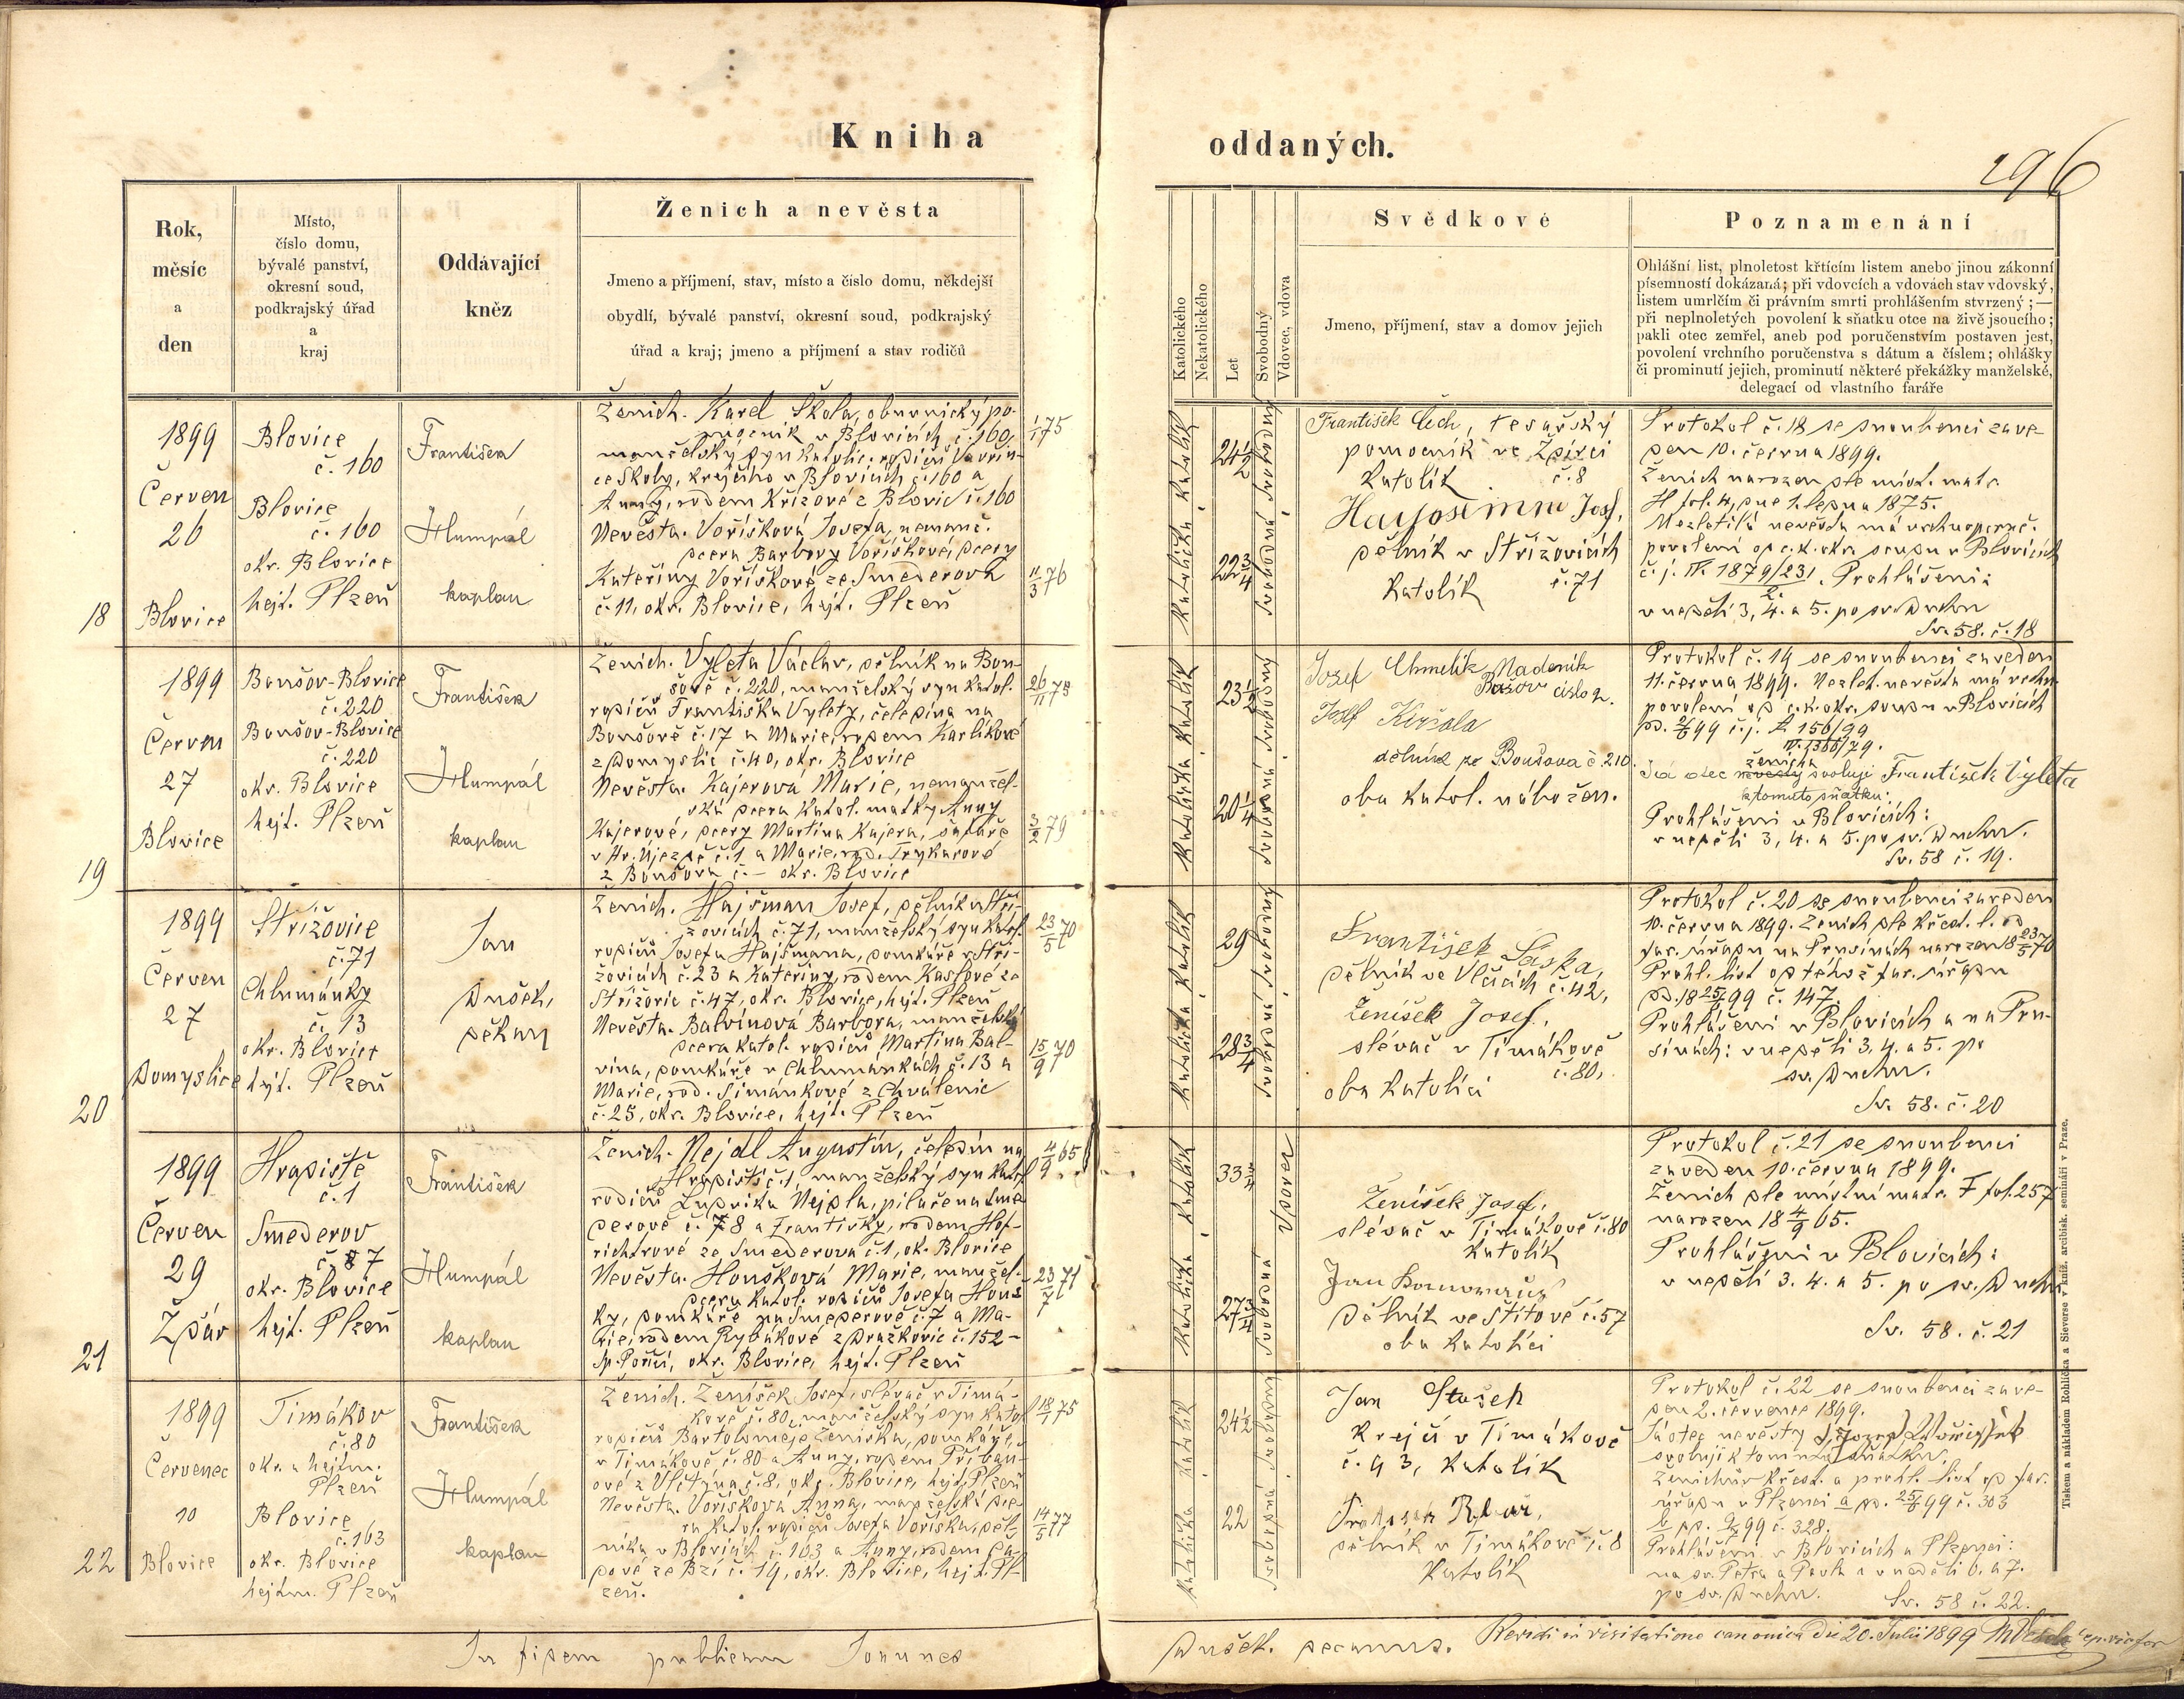 Kniha
oddaných.
296
Rok,
měsíc
a
den
Místo,
číslo domu,
bývalé panství,
okresní soud,
podkrajský úřad
a
kraj
Oddávající
kněz
Ženich a nevěsta
Jmeno a příjmení, stav, místo a číslo domu, někdejší
obydlí, bývalé panství, okresní soud, podkrajský
úřad a kraj; jmeno a příjmení a stav rodičů
Katolického
Nekatolického
Let
Svobodný
Vdovec, vdova
Svědkové
Jmeno, příjmení, stav a domov jejich
Poznamenání
Ohlášní list, plnoletost křtícím listem anebo jinou zákonní
písemností dokázaná; při vdovcích a vdovách stav vdovský,
listem umrlčím či právním smrti prohlášením stvrzený; —
při neplnoletých povolení k sňatku otce na živě jsoucího;
pakli otec zemřel, aneb pod poručenstvím postaven jest,
povolení vrchního poručenstva s dátum a číslem; ohlášky
či prominutí jejich, prominutí některé překážky manželské,
delegací od vlastního faráře
18
1899
Červen
26
Blovice
Blovice
č. 160
Blovice
č. 160
okr. Blovice
hejt. Plzeň
František
Hlumpál
kaplan
Ženich. Karel Škola, obuvnický po-
mocník v Blovicích č. 160,
manželský syn katolic. rodičů Vavřin-
ce Školy, krejčího v Blovicích č. 160 a
Anny, rodem Křížové z Blovic č. 160
Nevěsta. Voříšková Josefa, nemanž.
dcera Barbory Voříškové, dcery
Kateřiny Voříškové ze Smederova
č. 11, okr. Blovice, hejt. Plzeň
1/1 75
11/3 76
Katolík
Katolička
24 1/2
22 3/4
svobodný
svobodná
František Čech, tesařský
pomocník ve Ždírci
Katolík č. 8
Josef,
dělník v Střížovicích
Katolík č. 71
Protokol č. 18 se snoubenci zave-
den 10. června 1899.
Ženich narozen dle míst. matr.
H fol. 4, dne 1. ledna 1875.
Nezletilá nevěsta má vrchnoporuč.
povolení od c. k. okr. soudu v Blovicích
č. j. IV. 1879/231. Prohlášení:
2.
v neděli 3, 4. a 5. po sv. Duchu
Sv. 58. č. 18
19
1899
Červen
27
Blovice
Boušov-Blovice
č. 220
Boušov-Blovice
č. 220
okr. Blovice
hejt. Plzeň
František
Hlumpál
kaplan
Ženich. Vyleta Václav, dělník na Bou-
šově č. 220, manželský syn katol.
rodičů Františka Vylety, čeledína na
Boušově č. 17 a Marie, rodem Karlíkové
z Domyslic č. 40, okr. Blovice
Nevěsta. Kajerová Marie, nemanžel-
ská dcera katol. matky Anny
Kajerové, dcery Martina Kajera, šafáře
v Hr. Újezdě č. 1 a Marie, rod. Trykarové
z Boušova č. – okr. Blovice
26/11 75
3/2 79
Katolík
Katolička
23 1/2
20 1/4
svobodný
svobodná
Josef Chmelík Nadeník
Bašov číslo 2.
Josef
dělník ze Boušova č. 210.
oba katol. nábožen.
Protokol č. 19 se snoubenci zaveden
11. června 1899. Nezlet. nevěsta má vrchn.
povolení od c. k. okr. soudu v Blovicích
dd. 2/6 99 č. j. P. 156/99
Já otec nevěsty ženicha svoluji František Vyleta
k tomuto sňatku:
Prohlášení v Blovicích:
v neděli 3, 4. a 5. po sv. Duchu.
Sv. 58 č. 19.
20
1899
Červen
27
Domyslice
Střížovice
č. 71
Chlumánky
č. 13
okr. Blovice
hejt. Plzeň
Jan
Dušek,
děkan
Ženich. Hajšman Josef, dělník v Stří-
žovicích č. 71, manželský syn katol.
rodičů Josefa Hajšmana, domkáře v Stří-
žovicích č. 23 a Kateřiny, rodem Kaslové ze
Střížovic č. 47, okr. Blovice, hejt. Plzeň
Nevěsta. Balvínová Barbora, manželská
dcera katol. rodičů Martina Bal-
vína, domkáře v Chlumankách č. 13 a
Marie, rod. Šimánkové z Chválenic
č. 25, okr. Blovice, hejt. Plzeň
23/5 70
15/9 70
Katolík
Katolička
29
28 3/4
svobodný
svobodná
František Laska,
dělník ve Vlčicích č. 42,
Ženíšek Josef,
slévač v Timákově
č. 80,
oba katolíci
Protokol č. 20 se snoubenci zaveden
10. června 1899. Ženich dle křest. l. od
far. úřadu na Prusinách narozen 18 23/5 70
Prohl. list od téhož far. úřadu
dd. 18 25/6 99 č. 147.
Prohlášení v Blovicích a na Pru-
sinách: v neděli 3, 4. a 5. po
sv. Duchu.
Sv. 58. č. 20
21
1899
Červen
29
Ždár
Hradiště
č. 1
Smederov
č. 7
okr. Blovice
hejt. Plzeň
František
Hlumpál
kaplan
Ženich. Nejdl Augustin, čeledín na
Hradišti č. 1, manželský syn katol.
rodičů Ludvíka Nejdla, pilaře na Sme-
derově č. 78 a Františky, rodem Hof-
richtrové ze Smederova č. 1, ok. Blovice
Nevěsta. Houšková Marie, manžel.
dcera katol. rodičů Josefa Houš-
ky, domkáře na Smederově č. 7 a Ma-
rie, rodem Rybákové z Drazkovic č. 152 –
Sp. Poříčí, okr. Blovice, hejt. Plzeň
4/9 65
23/7 71
Katolík
Katolička
33 3/4
27 3/4
vdovec
svobodná
Ženíšek Josef,
slévač v Timákově č. 80
Katolík
Jan
Dělník ve Štítově č. 57
oba katolíci
Protokol č. 21 se snoubenci
zaveden 10. června 1899.
Ženich dle místní matr. F fol. 257
narozen 18 4/9 65.
Prohlášení v Blovicích:
v neděli 3. 4. a 5. po sv. Duchu
Sv. 58. č. 21
22
1899
Červenec
10
Blovice
Timákov
č. 80
okr. a hejtm.
Plzeň
Blovice
č. 163
okr. Blovice
hejtm. Plzeň
František
Hlumpál
kaplan
Ženich. Ženíšek Josef, slévač v Timá-
kově č. 80, manželský syn katol.
rodičů Bartoloměje Ženíška, domkáře
v Timákově č. 80 a Anny, rodem Příban-
ové z Vlčtýna č. 8, okr. Blovice, hejt. Plzeň
Nevěsta. Voříšková Anna, manželská dce-
ra katol. rodičů Josefa Voříška, děl-
níka v Blovicích č. 163 a Anny, rodem Ča-
pové ze Bzí č. 19, okr. Blovice, hejt. Pl-
zeň.
18/1 75
14/5 77
Katolík
Katolička
24 1/2
22
svobodný
svobodná
Jan Stašek
Krejčí v Timákově
č. 93, katolík
dělník v Timákově č. 8
Katolík
Protokol č. 22 se snoubenci zave-
den 2. července 1899.
Já otec nevěsty Josef Woříšek
svoluji k tomuto sňatku.
Ženichův křest. a prohl. list od far.
úřadu v Plzenci a dd. 25/6 99 č. 303
b dd. 9/7 99 č. 328.
Prohlášení v Blovicích a Plzenci:
na sv. Petra a Pavla a v neděli 6. a 7.
po sv. Duchu. Sv. 58 č. 22.
In fidem publicam Joannes
Dušek. decanus.
Revidi in visitatione canonica die 20. Julii 1899
Tiskem a nákladem Rohlíčka a Sieverse v kníž. arcibisk. semináři v Praze.